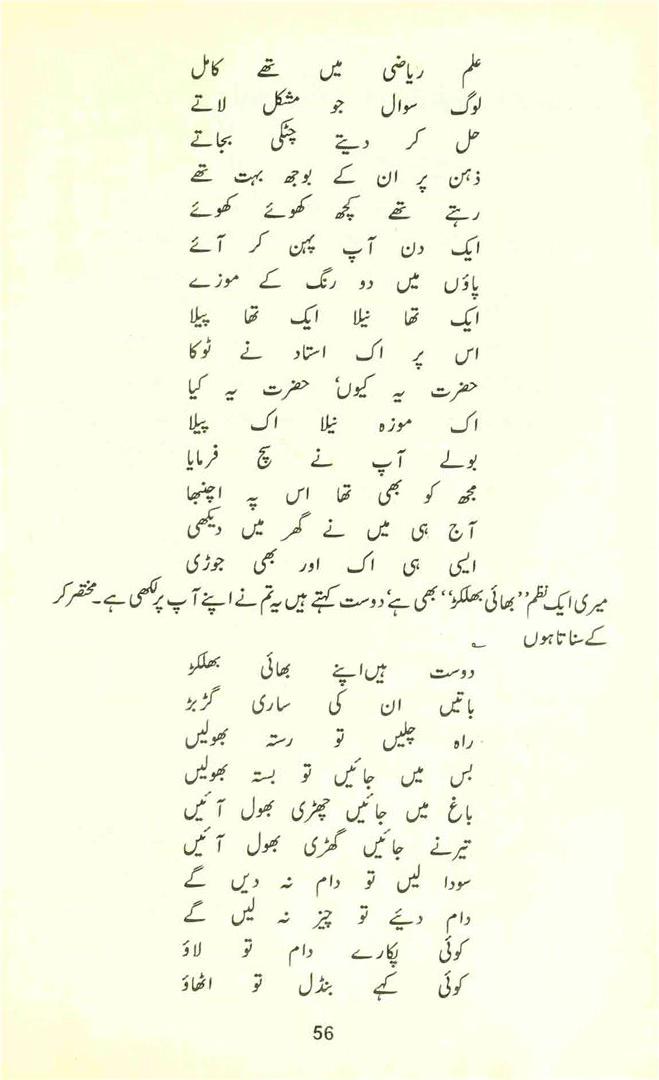 علم ریاضی میں تھے کامل
لوگ سوال جو مشکل لاتے
حل کر دیتے چٹکی بجاتے
ذہن پر ان کے بوجھ بہت تھے
رہتے تھے کچھ کھوئے کھوئے
ایک دن آپ پہن کر آئے
پاؤں میں دو رنگ کے موزے
ایک تھا نیلا ایک تھا پیلا
اس پر اک استاد نے ٹوکا
حضرت یہ کیوں، حضرت یہ کیا
اک موزہ نیلا اک پیلا
بولے آپ نے سچ فرمایا
مجھ کو بھی تھا اس پہ اچنبھا
آج ہی میں نے گھر میں دیکھی
ایسی ہی اک اور بھی جوڑی
میری ایک نظم ”بھائی بھلکڑ“ بھی ہے، دوست کہتے ہیں یہ تم نے اپنے آپ پر لکھی ہے۔ مختصر کر
کے سناتا ہوں ؎
دوست ہیں اپنے بھائی بھلکڑ
باتیں ان کی ساری گڑبڑ
راہ چلیں تو رستہ بھولیں
بس میں جائیں تو بستہ بھولیں
باغ میں جائیں چھڑی بھول آئیں
تیرنے جائیں گھڑی بھول آئیں
سودا لیں تو دام نہ دیں گے
دام دیئے تو چیز نہ لیں گے
کوئی پکارے دام تو لاؤ
کوئی کہے بنڈل تو اٹھاؤ
56